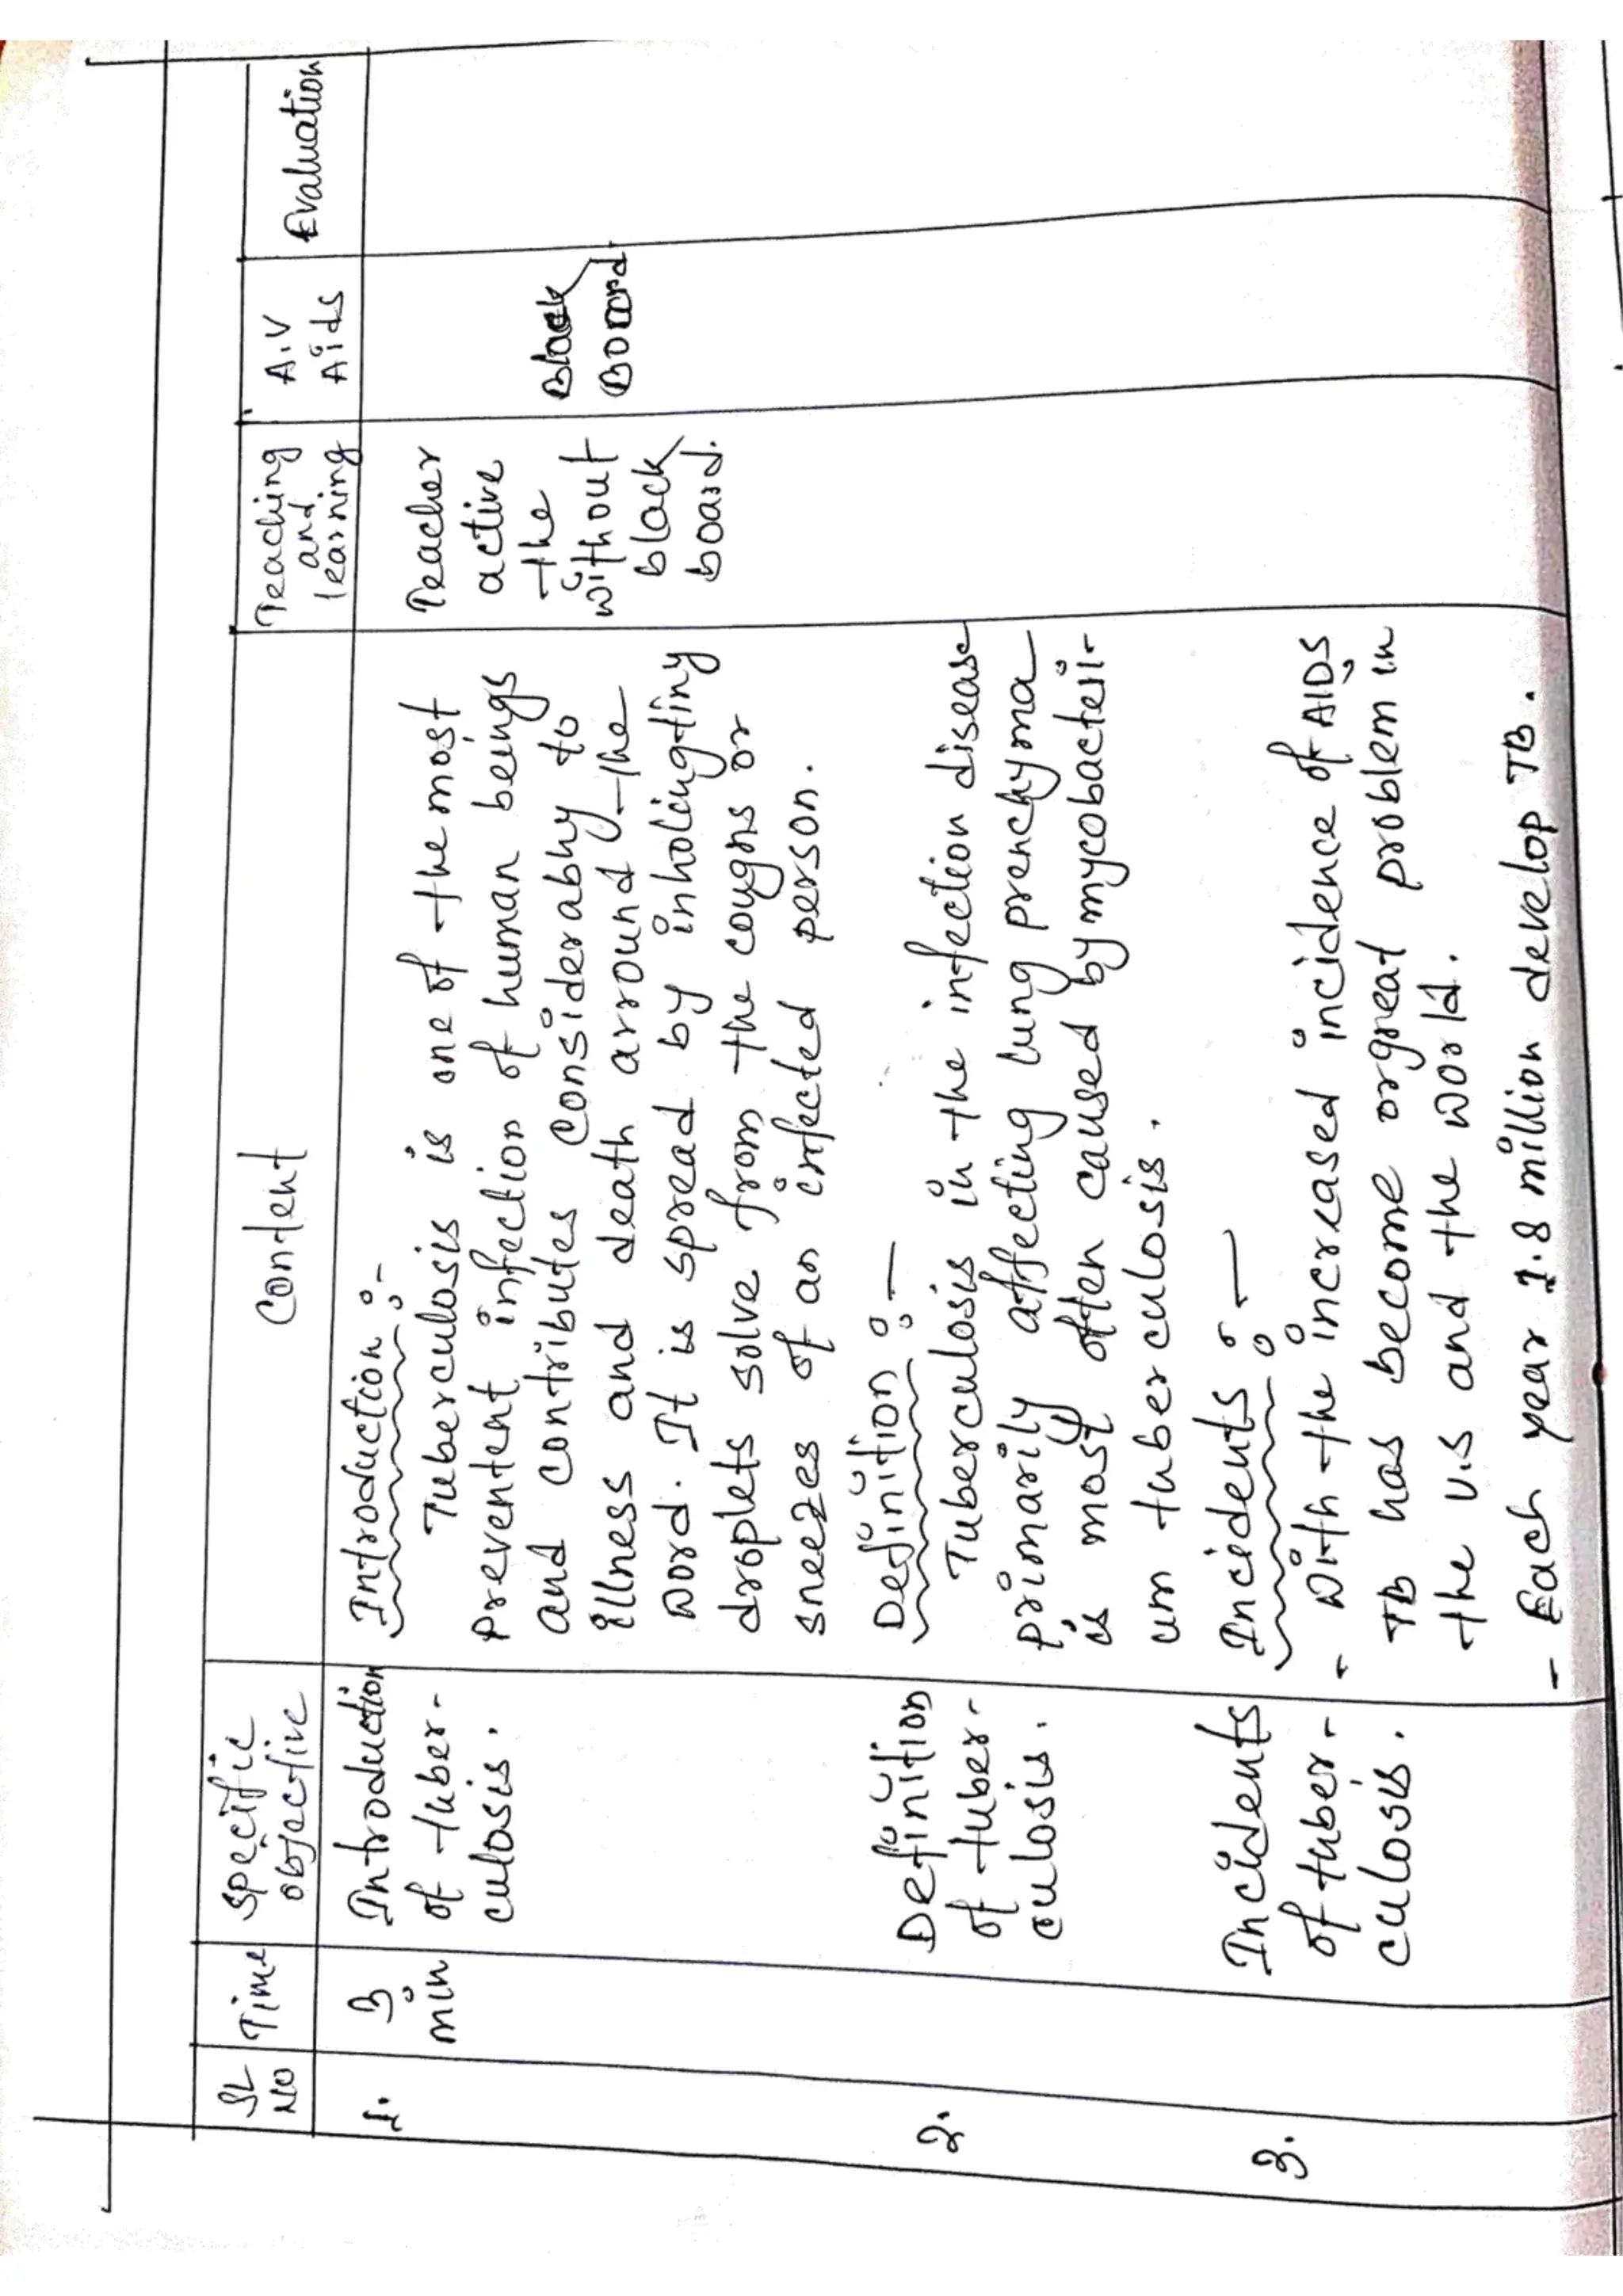 SL NO
Time
Specific objective
Content
Teaching and learning
A.V Aids
Evaluation
1.
3 min
Introduction
of tuber-
culosis.
Introduction :-
Tuberculosis is one of the most
preventent infection of human beings
and contributes considerabhy to
illness and death arround the
word. It is spread by inholing tiny
droplets solve from the coughs or
sneezes of an infected person.
Teacher
active
the
without
black
board.
Black
Board
2.
Definition
of tuber-
culosis.
Definition :-
Tuberculosis in the infection disease
primarily affecting lung prenchyma
is most often caused by mycobacteri-
um tuberculosis.
3.
Incidents
of tuber-
culosis.
Incidents :-
- With the increased incidence of AIDS,
TB has become orgreat problem in
the U.S and the world.
- Each year 1.8 million develop TB.